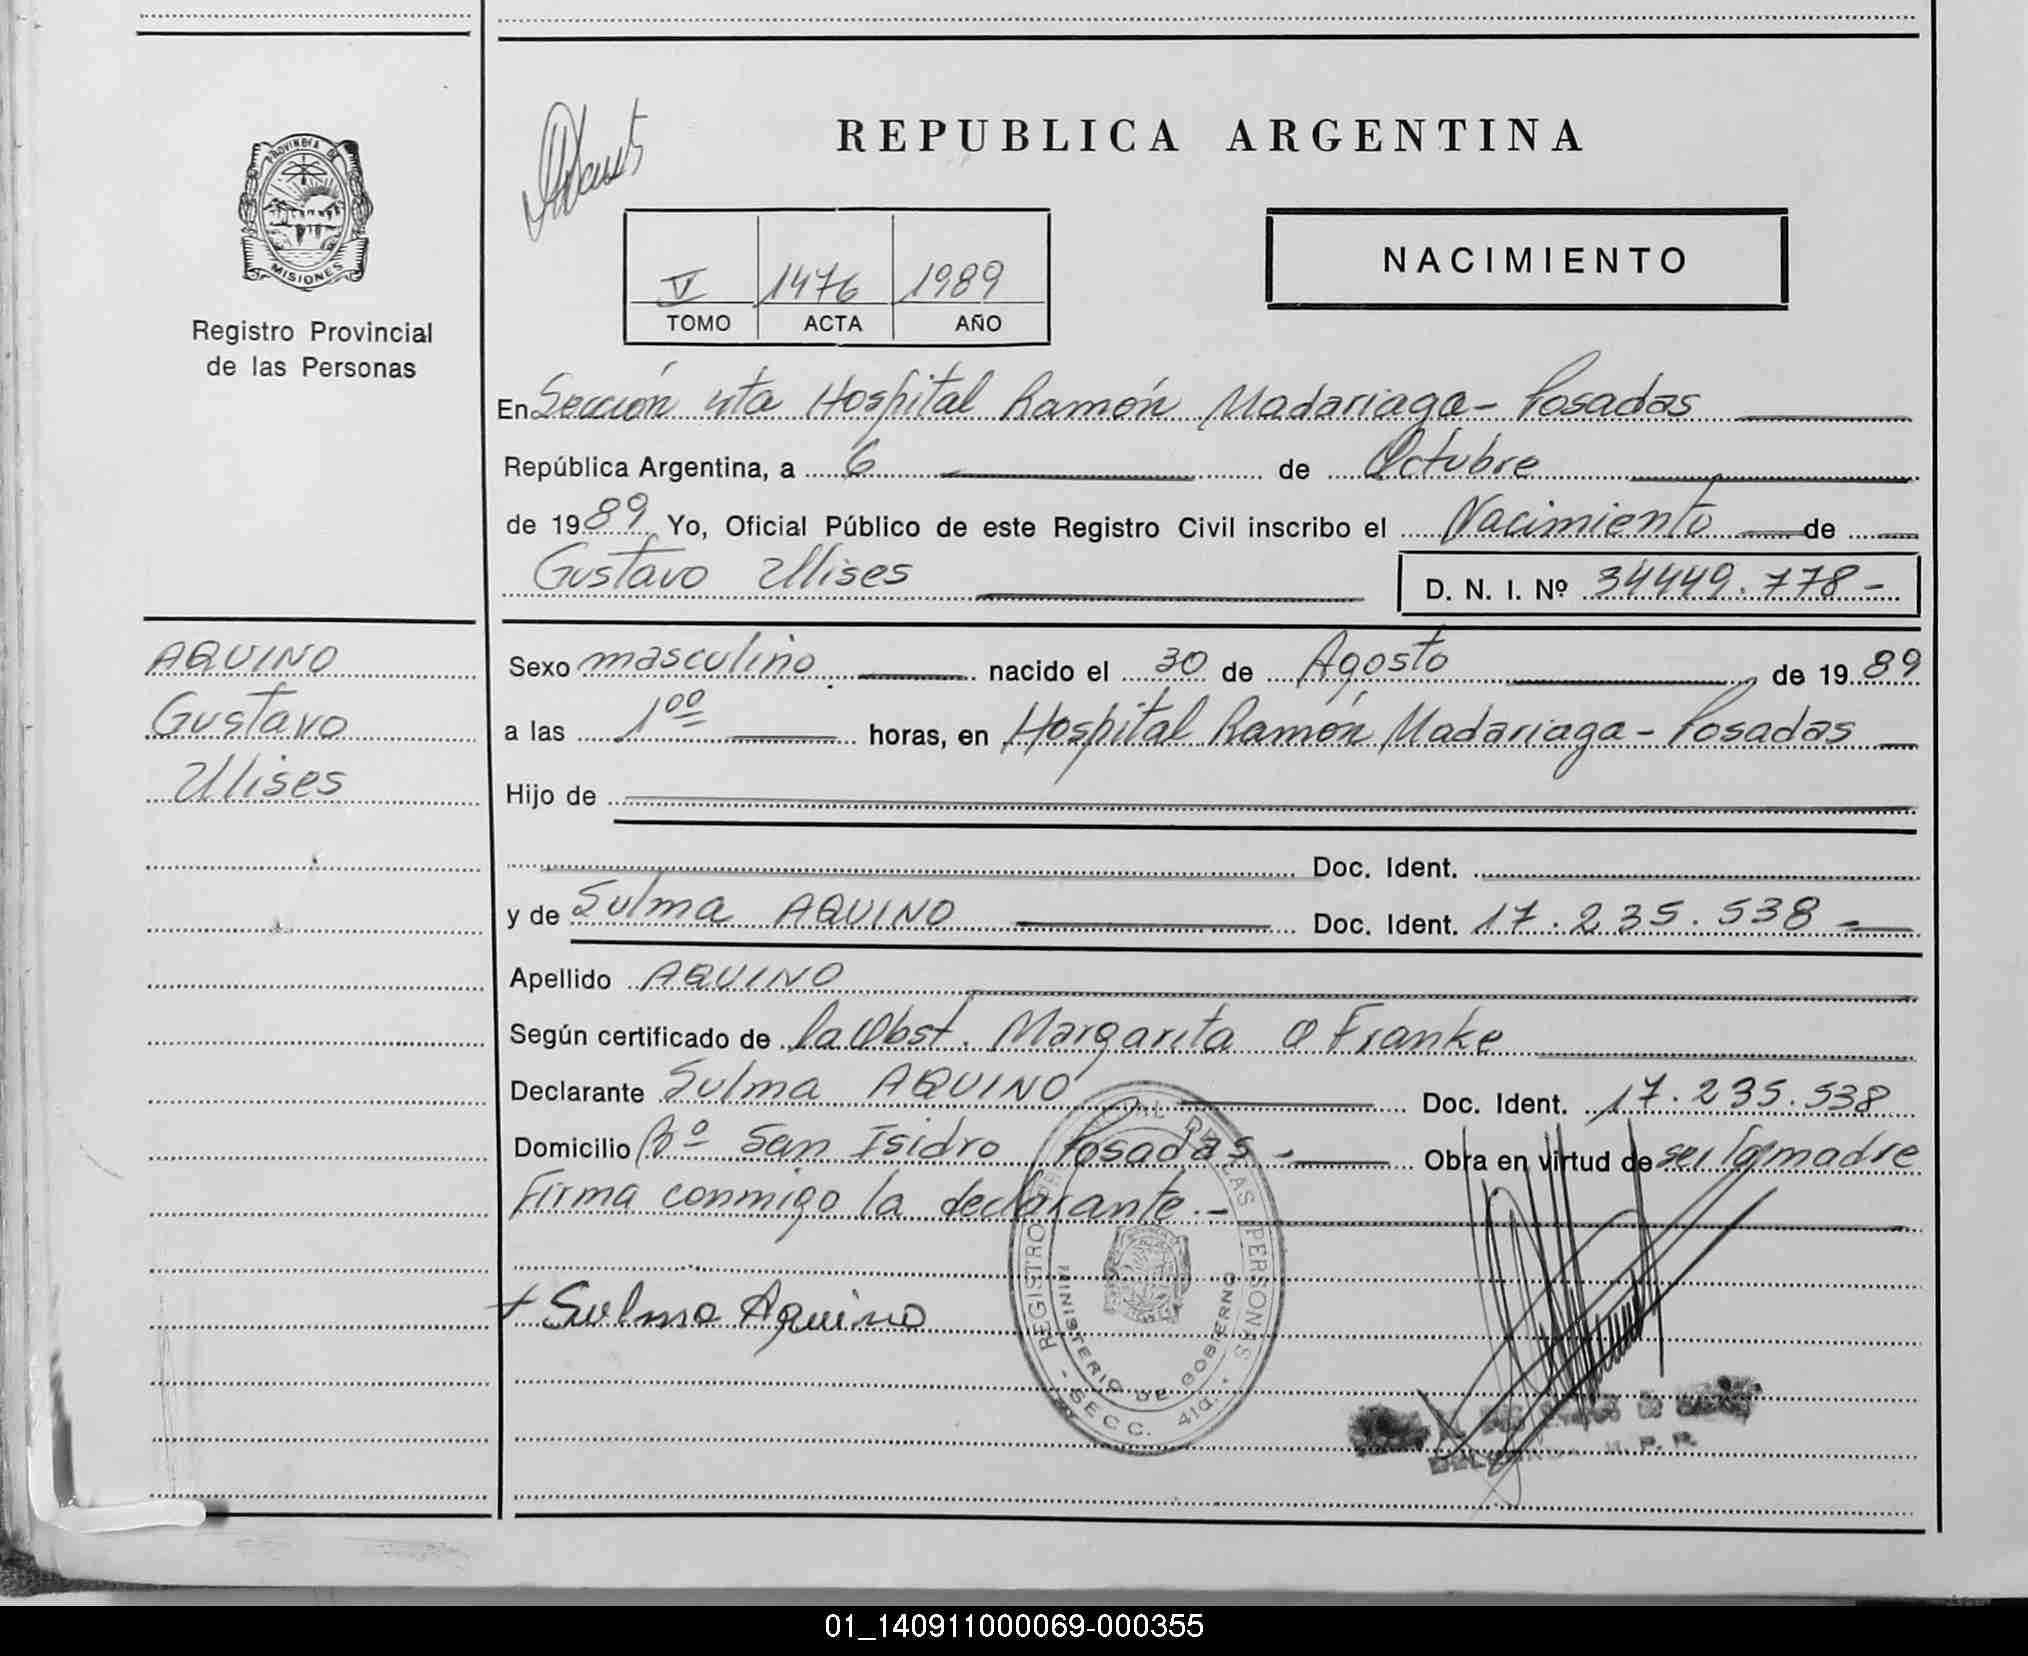 REPUBLICA ARGENTINA
PROVINCIA DE
MISIONES
Registro Provincial
de las Personas
V 1476 1989
TOMO ACTA AÑO
NACIMIENTO
En Sección 4ta Hospital Ramón Madariaga - Posadas
República Argentina, a 6 de Octubre
de 1989 Yo, Oficial Público de este Registro Civil inscribo el Nacimiento de
Gustavo Ulises D. N. I. Nº 34449.778-
AQUINO
Gustavo
Ulises
Sexo masculino nacido el 30 de Agosto de 1989
a las 1 00 horas, en Hospital Ramón Madariaga - Posadas
Hijo de
Doc. Ident.
y de Sulma AQUINO Doc. Ident. 17.235.538-
Apellido AQUINO
Según certificado de la Obst. Margarita O Franke
Declarante Sulma AQUINO Doc. Ident. 17.235.538
Domicilio Bº San Isidro Posadas - Obra en virtud de ser la madre
Firma conmigo la declarante.-
+ Sulma Aquino
REGISTRO DE LAS PERSONAS
MINISTERIO DE GOBIERNO
- SECC. 4ta. -
01_140911000069-000355